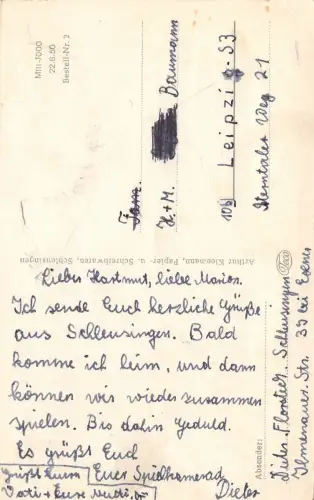 Lieber Hartmut, liebe Marion.
Ich sende Euch herzliche Grüße
aus Schleusingen. Bald
komme ich heim, und dann
können wir wieder zusammen
spielen. Bis dahin Geduld.
Es grüßt Euch
Euer Spielkamerad
Dieter
Grüßt Eure
Vati + Eure Mutti,
Absender:
Dieter Schleusingen
Ilmenauer Str. 33 bei
Arthur Kleemann, Papier- u. Schreibwaren, Schleusingen
Fam.
H. + M. Baumann
10b Leipzig-S3
Weg 21
MIII-7000
22.6.56
Bestell-Nr. 2